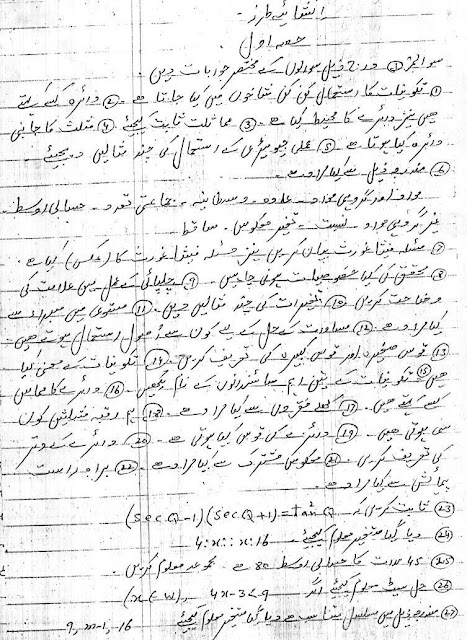 انشائیہ طرز
حصہ اول
سوال نمبر ① درج ذیل سوالوں کے مختصر جوابات دیں۔
① تکونیات کا استعمال کن کن شاخوں میں کیا جاتا ہے۔ ② دائرہ کسے کہتے
ہیں نیز دائرے کا محیط کیا ہے۔ ③ مماثلت ثابت کیجئے ④ مثلث کا جانبی
دائرہ کیا ہوتا ہے۔ ⑤ عملی جیومیٹری کے استعمال کی چند مثالیں دیجیئے۔
⑥ مندرجہ ذیل سے کیا مراد ہے۔
مواد اور گروہی مواد۔ علاوہ۔ وسطانیہ۔ جماعتی تعدد۔ حسابی اوسط
غیر گروہی مواد۔ نسبت۔ تغیر معکوس۔
⑦ مسئلہ فیثا غورث بیان کریں نیز مسئلہ فیثا غورث کا (عکس) کیا ہے
⑧ محقق کی کیا خصوصیات ہونی چاہیں۔ ⑨ کے عمل میں علامت کی
وضاحت کریں ⑩ کی چند مثالیں دیں۔ ⑪ مستوی میں سے
کیا مراد ہے۔ ⑫ مساورت کے حل کے لیے کون سے اصول استعمال ہوتے ہیں۔
⑬ قوس صغیرہ اور قوس کبیرہ کی تعریف کریں۔ ⑭ تکونیات کے معنی کیا
ہیں ⑮ تکونیات کے تین اہم سائنسدانوں کے نام لکھیں۔ ⑯ دائرے کا مماس
کسے کہتے ہیں۔ ⑰ کھلے فقروں سے کیا مراد ہے۔ ⑱ ہم رقبہ مثلثیں کون
سی ہوتی ہیں۔ ⑲ دائرے کی قوس کیا ہوتی ہے۔ ⑳ دائرے کے وتر
کی تعریف کریں۔ ㉑ معکوس مشترک سے کیا مراد ہے۔ ㉒ براہ راست
پیمائش سے کیا مراد ہے۔
㉓ ثابت کریں کہ (sec Q - 1)(sec Q + 1) = tan² Q
㉔ دیا گیا متغیر معلوم کیجئے۔ 4 : x :: x : 16
㉕ 45 مدات کا حسابی اوسط 80 ہے۔ مجموعہ معلوم کریں۔
㉖ حل سیٹ معلوم کیجئے اگر 4x - 3 < 9 , (x ∈ W)
㉗ مندرجہ ذیل میں مسلسل تناسب ہے دیا گیا متغیر معلوم کیجئے
9, m-1, -16